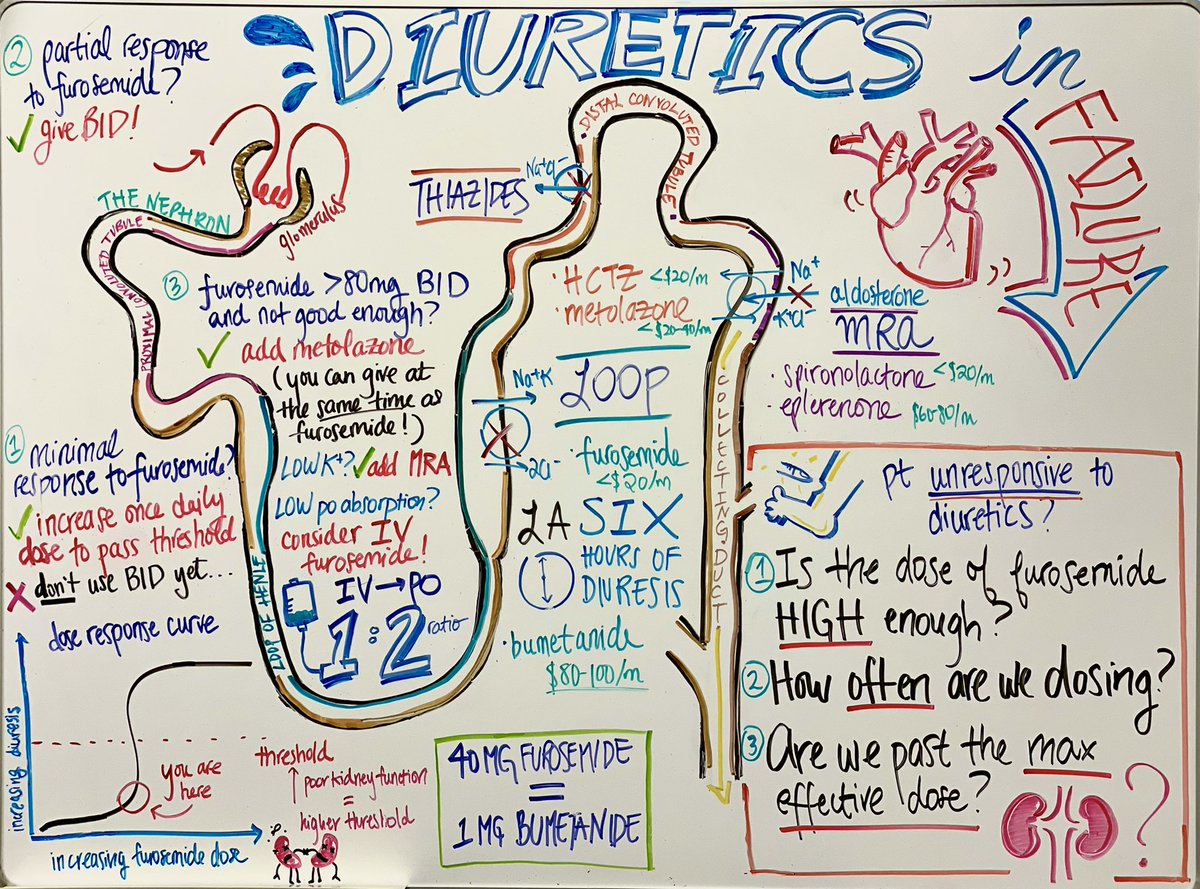 DIURETICS in
FAILURE
② partial response
to furosemide?
✓ give BID!
THE NEPHRON
glomerulus
PROXIMAL CONVOLUTED TUBULE
③ furosemide >80mg BID
and not good enough?
✓ add metolazone
(you can give at
the same time as
furosemide!)
LOW K+? ✓ add MRA
LOW po absorption?
consider IV
furosemide!
IV → PO
1:2 ratio
① minimal
response to furosemide?
✓ increase once daily
dose to pass threshold
✗ don't use BID yet...
dose response curve
increasing diuresis
increasing furosemide dose
you are
here
threshold
↑ poor kidney function
=
higher threshold
LOOP OF HENLE
·DISTAL CONVOLUTED TUBULE·
Na+Cl-
THIAZIDES
·HCTZ <$20/m
·metolazone
<$20-40/m
Na+K
2Cl-
LOOP
·furosemide
<$20/m
LA SIX
HOURS OF
DIURESIS
·bumetanide
$80-100/m
40MG FUROSEMIDE
=
1MG BUMETANIDE
COLLECTING DUCT
Na+
K+Cl-
aldosterone
MRA
·spironolactone <$20/m
·eplerenone $60-80/m
pt unresponsive to
diuretics?
① Is the dose of furosemide
HIGH enough?
② How often are we dosing?
③ Are we past the max
effective dose?
?